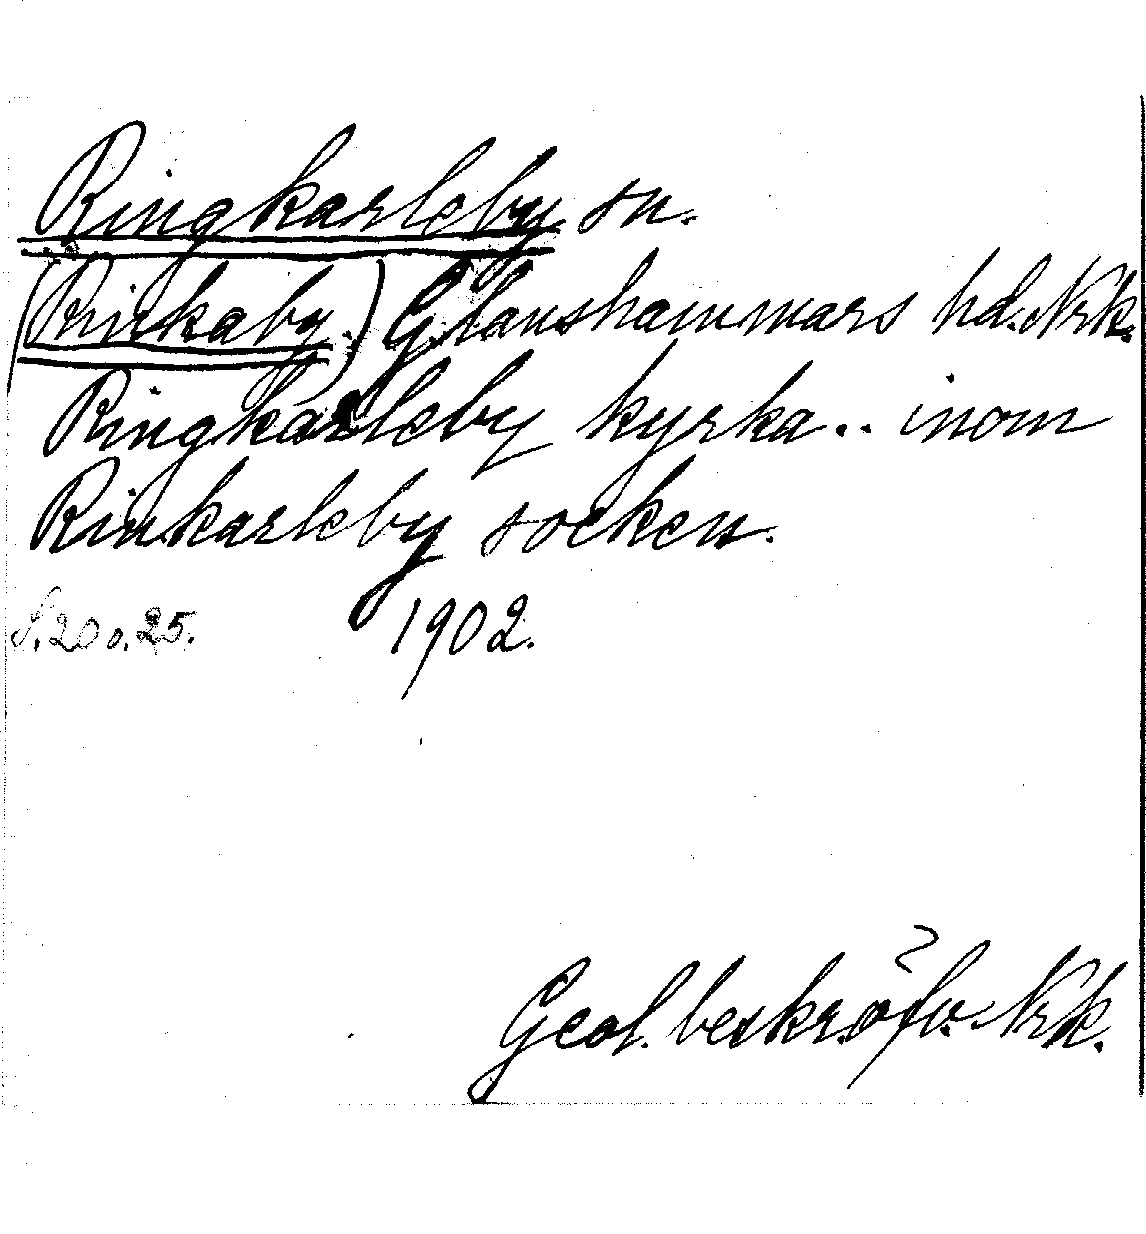 Ringkarleby sn.
(Rinkaby.) Glanshammars hd. Nrk.
Ringkarleby kyrka .. inom
Rinkarleby socken.
S. 20 o. 25. 1902.
Geol. beskr. öfv. Nrk.